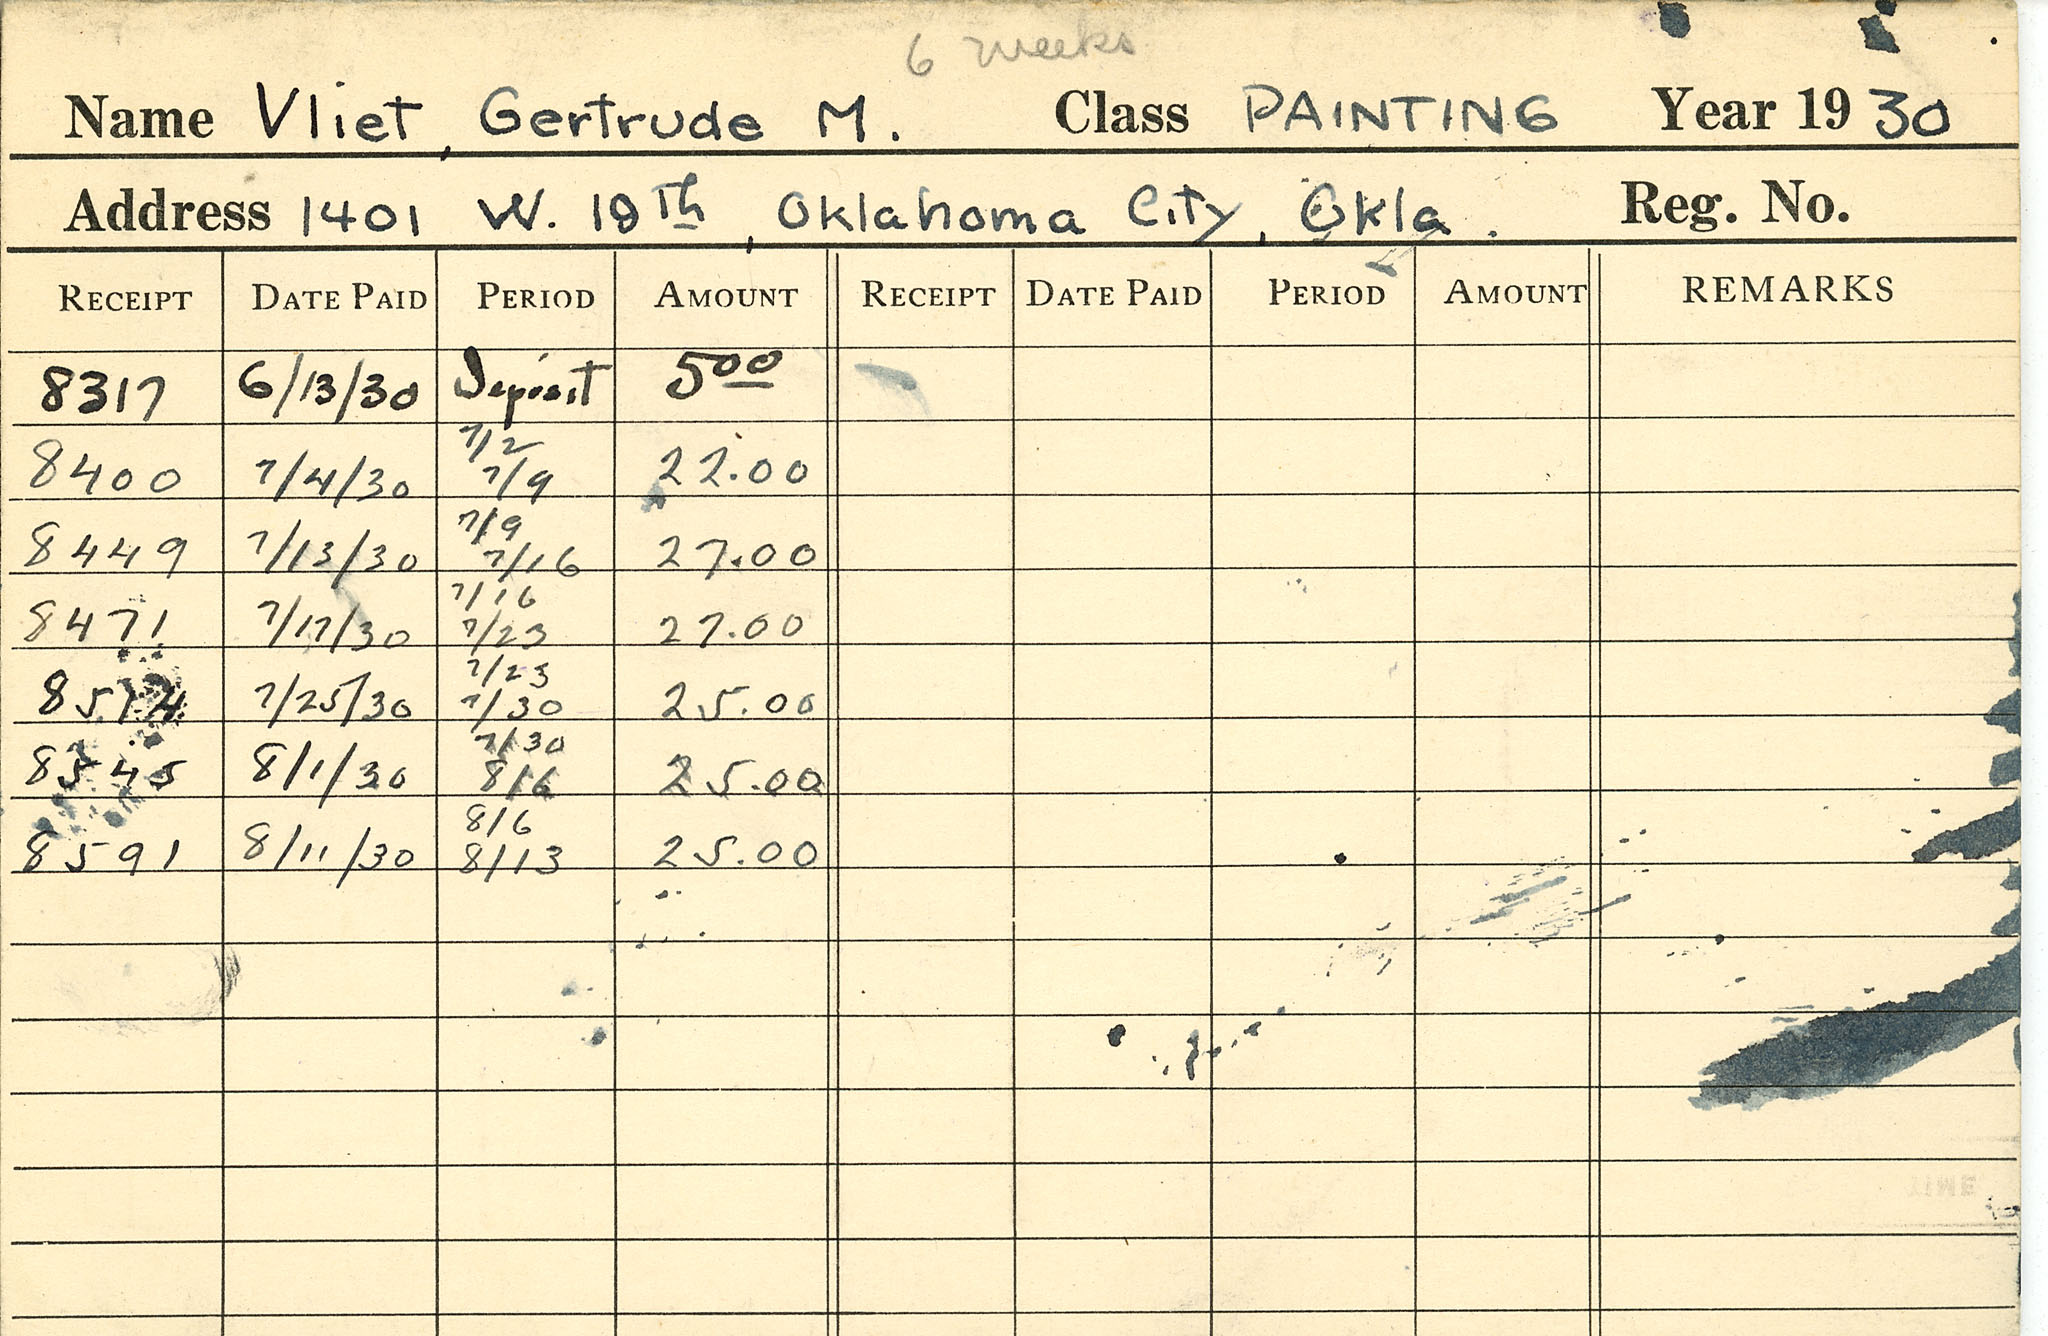 6 weeks
Name Vliet, Gertrude M. Class PAINTING Year 1930
Address 1401 W. 18th, Oklahoma City, Okla. Reg. No.
RECEIPT DATE PAID PERIOD AMOUNT RECEIPT DATE PAID PERIOD AMOUNT REMARKS
8317 6/13/30 Deposit 5 00
8400 7/4/30 7/2 7/9 22.00
8449 7/13/30 7/9 7/16 27.00
8471 7/17/30 7/16 7/23 27.00
8514 7/25/30 7/23 7/30 25.00
8545 8/1/30 7/30 8/6 25.00
8591 8/11/30 8/6 8/13 25.00